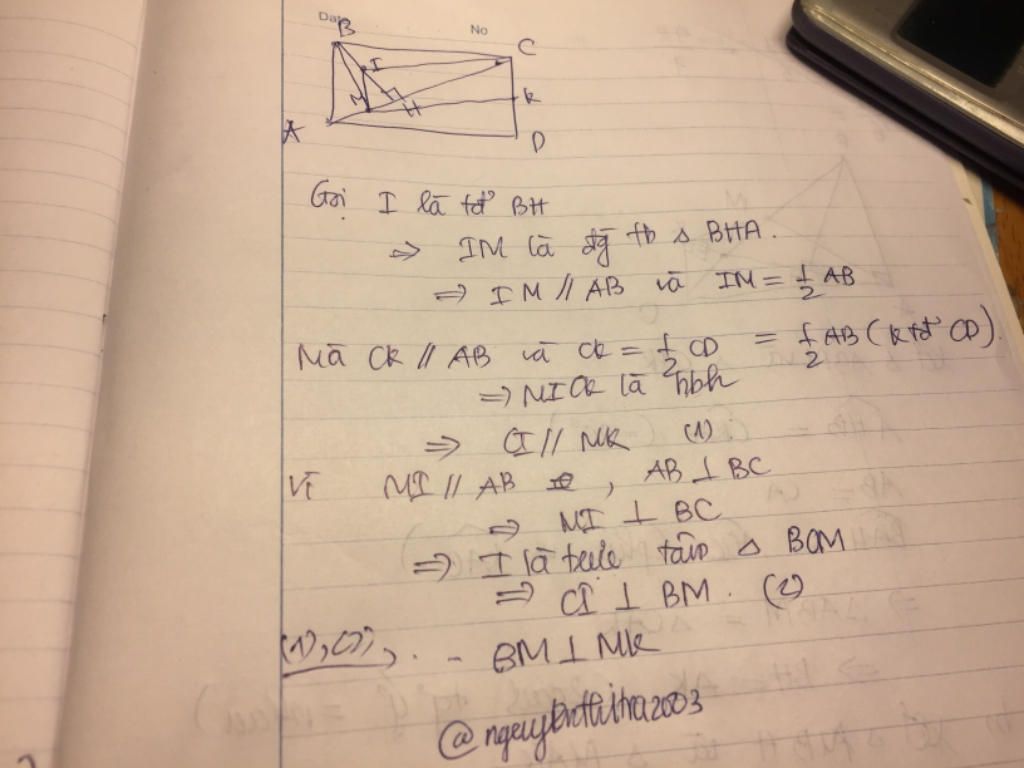 Date No
B
C
I
M
H
K
A
D
Gọi I là tđ BH
=> IM là đg tb Δ BHA.
=> IM // AB và IM = 1/2 AB
Mà CK // AB và CK = 1/2 CD = 1/2 AB (K tđ CD).
=> MICK là hbh
=> CI // MK (1)
Vì MI // AB , AB ⊥ BC
=> MI ⊥ BC
=> I là trực tâm Δ BCM
=> CI ⊥ BM. (2)
(1), (2), . . - BM ⊥ MK